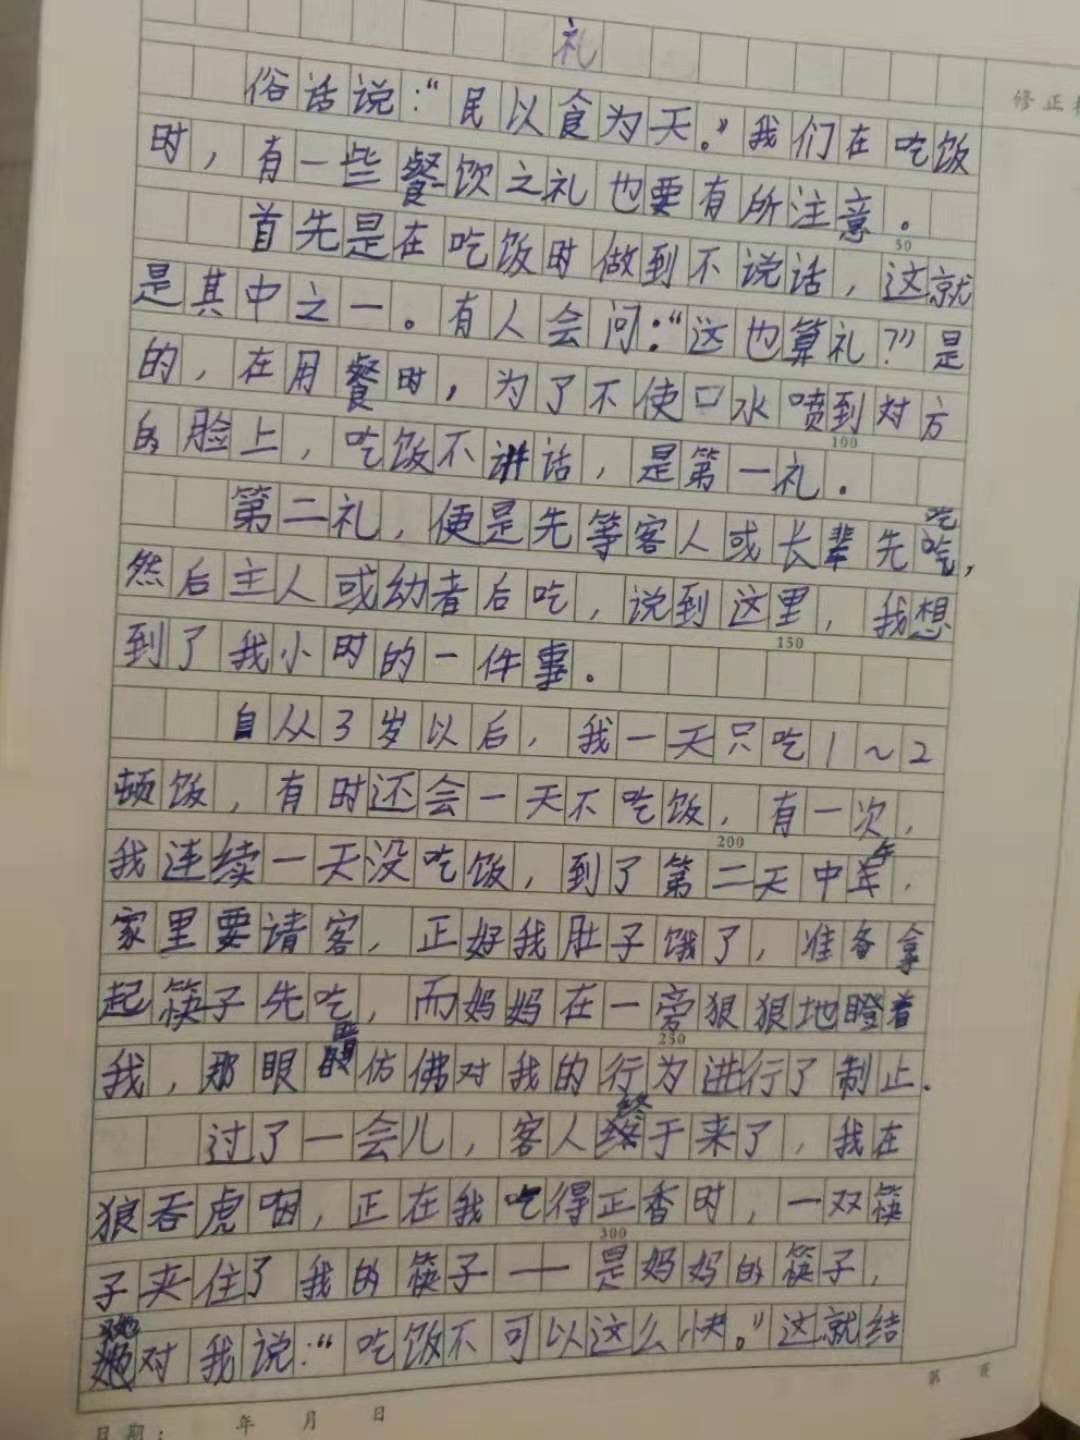 礼
修正
俗话说：“民以食为天。”我们在吃饭
时，有一些餐饮之礼也要有所注意。
50
首先是在吃饭时做到不说话，这就
是其中之一。有人会问：“这也算礼？”是
的，在用餐时，为了不使口水喷到对方
100
的脸上，吃饭不讲话，是第一礼。
第二礼，便是先等客人或长辈先吃，
然后主人或幼者后吃，说到这里，我想
150
到了我小时的一件事。
自从3岁以后，我一天只吃1～2
顿饭，有时还会一天不吃饭，有一次，
200
我连续一天没吃饭，到了第二天中午，
家里要请客，正好我肚子饿了，准备拿
起筷子先吃，而妈妈在一旁狠狠地瞪着
250
我，那眼仿佛对我的行为进行了制止。
过了一会儿，客人终于来了，我在
狼吞虎咽，正在我吃得正香时，一双筷
300
子夹住了我的筷子——是妈妈的筷子，
她对我说：“吃饭不可以这么快。”这就结
第 页
日期： 年 月 日